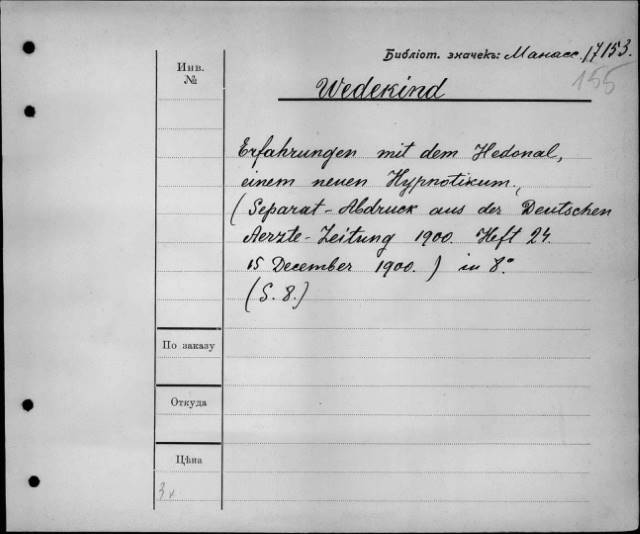 Библіот. значекъ: Манасс. 17153.
155
Инв.
№
Wedekind
Erfahrungen mit dem Hedonal,
einem neuen Hypnotikum.,
(Separat-Abdruck aus der Deutschen
Aerzte-Zeitung 1900. Heft 24.
15 December 1900.) in 8°
(S. 8.)
По заказу
Откуда
Цѣна
3